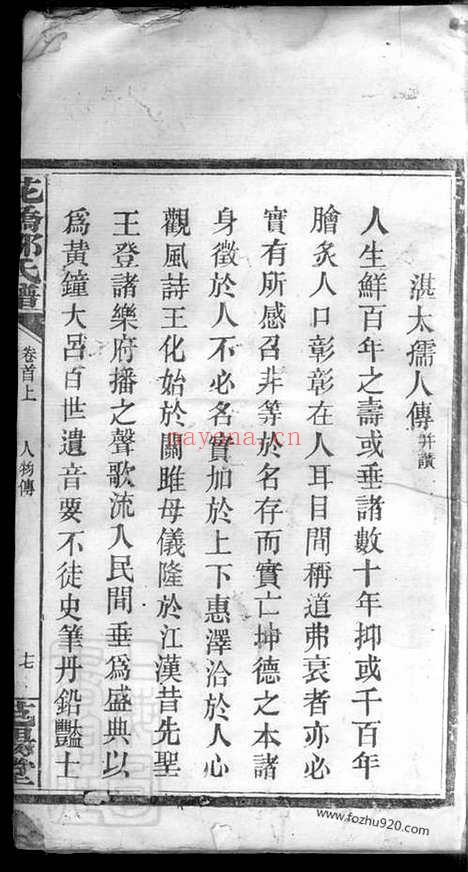 湛太孺人傳并讚
人生鮮百年之壽或垂諸數十年抑或千百年
膾炙人口彰彰在人耳目間稱道弗衰者亦必
實有所感召非等於名存而實亡坤德之本諸
身徵於人不必名實加於上下惠澤洽於人心
觀風詩王化始於關雎母儀隆於江漢昔先聖
王登諸樂府播之聲歌流入民間垂為盛典以
為黃鐘大呂百世遺音要不徒史筆丹鉛豔士
花橋邱氏譜
卷首上
人物傳
七
nayona.cn
www.fozhu920.com